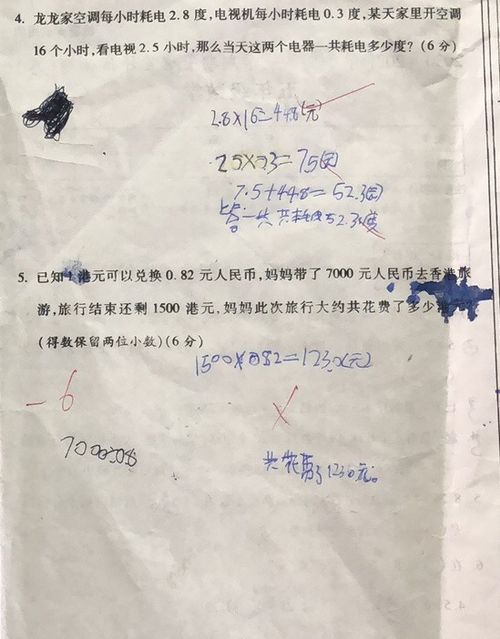 4. 龙龙家空调每小时耗电2.8度,电视机每小时耗电0.3度,某天家里开空调
16个小时,看电视2.5小时,那么当天这两个电器一共耗电多少度?(6分)
2.8×16=448(元)
25×03=75(元)
7.5+448=52.3(元)
答:一共共耗电52.3度
5. 已知1港元可以兑换0.82元人民币,妈妈带了7000元人民币去香港旅
游,旅行结束还剩1500港元,妈妈此次旅行大约共花费了多少港
(得数保留两位小数)(6分)
1500×082=1230(元)
-6
共花费了1230元。